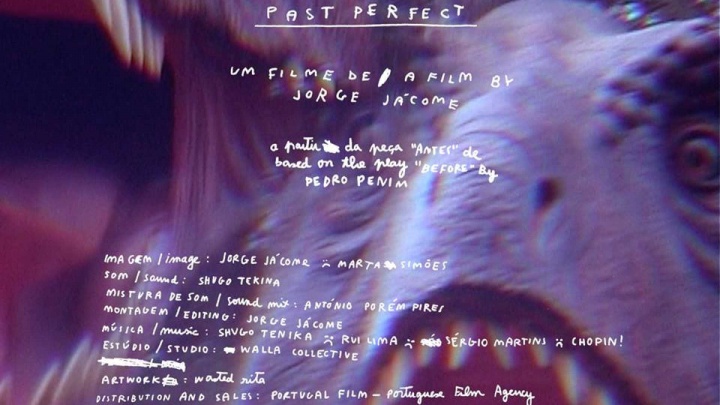 PAST PERFECT
UM FILME DE / A FILM BY
JORGE JÁCOME
a partir da peça "ANTES" de
based on the play "BEFORE" By
PEDRO PENIM
IMAGEM / image : JORGE JÁCOME MARTA SIMÕES
SOM / sound : SHUGO TEKINA
MISTURA DE SOM / sound mix : ANTÓNIO PORÉM PIRES
MONTAGEM / EDITING : JORGE JÁCOME
MÚSICA / music : SHUGO TENIKA RUI LIMA SÉRGIO MARTINS CHOPIN!
ESTÚDIO / STUDIO : WALLA COLLECTIVE
ARTWORK : wasted rita
DISTRIBUTION AND SALES : PORTUGAL FILM – Portuguese Film Agency